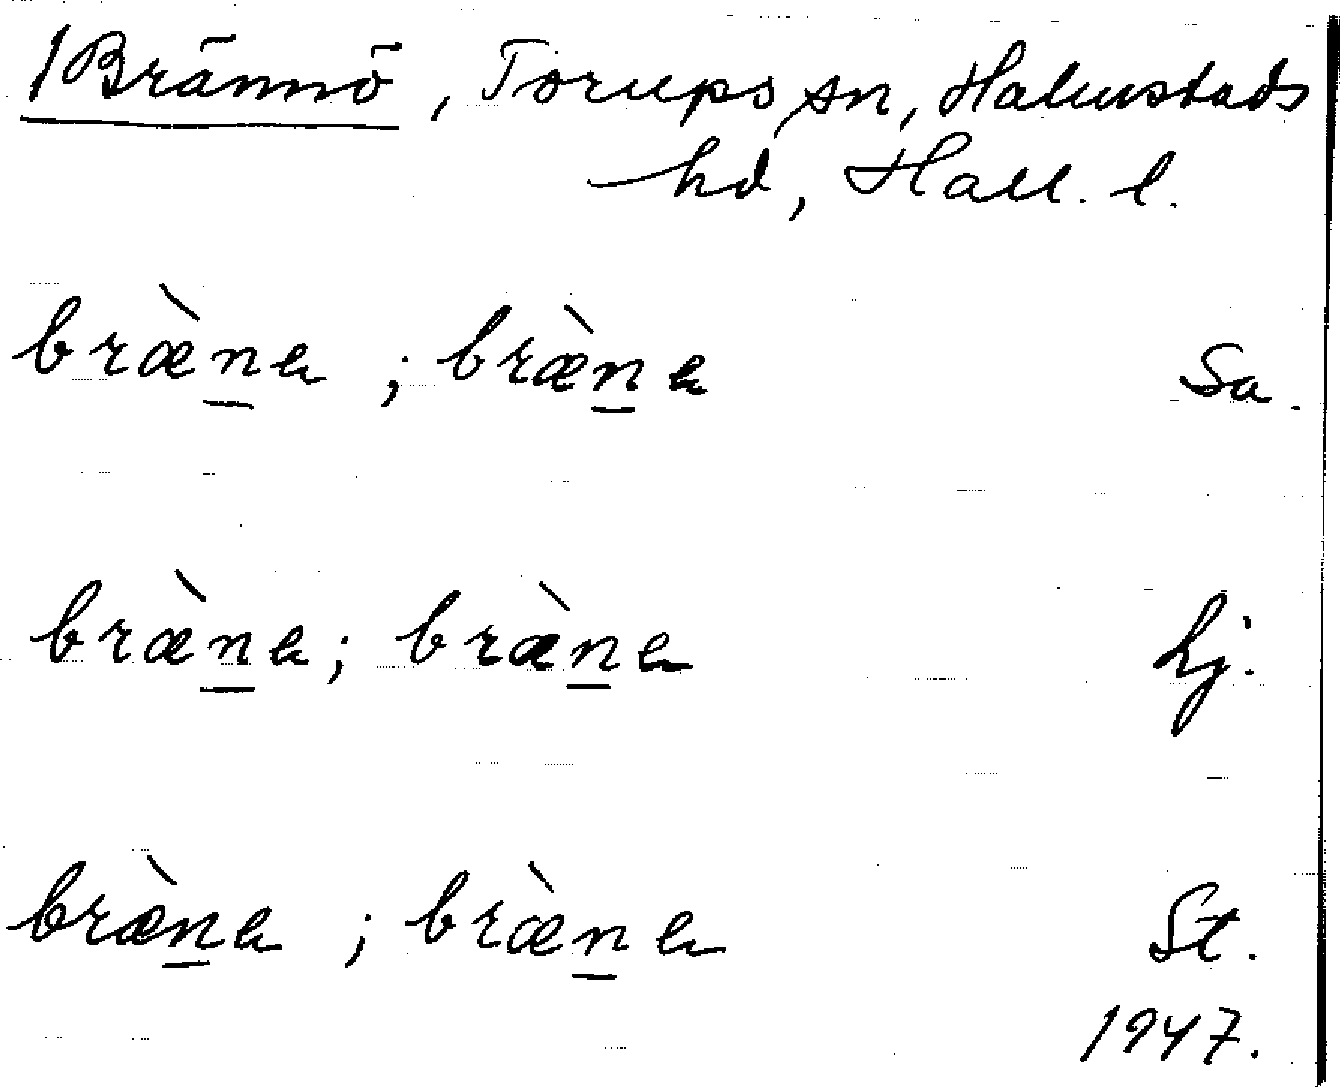 /Brännö, Torups sn, Halmstads
hd, Hall. l.
bræ̀n̲ɐ ; bræ̀n̲ɐ Sa.
bræ̀n̲ɐ; bræ̀n̲ɐ Lj.
bræ̀n̲ɐ ; bræ̀n̲ɐ St.
1947.